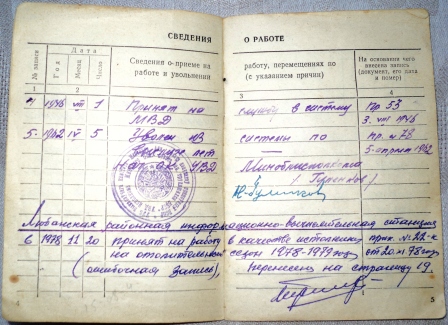 СВЕДЕНИЯ О РАБОТЕ
№ записи
Дата
Год
Месяц
Число
Сведения о приеме на работе и увольнении
работу, перемещениях по
(с указанием причин)
На основании чего
внесена запись
(документ, его дата
и номер)
1 2 3 4
1946 VII 1 Принят на службу в систему Пр 53
МВД 3. VII 1946
5. 1962 IV 5 Уволен из системы по пр. №78
лет 5-апреля 1962
Любанская районная информационно-вычислительная станция
6 1978 11 20 принят на работу в качестве истопника прик. №22-к
на отопительный сезон 1978-1979 года от 20 XI 78 года
(ошибочная запись), Перенесена на страницу 19.
4 5